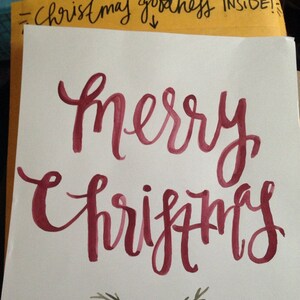 Christmas goodness INSIDE!
merry
Christmas